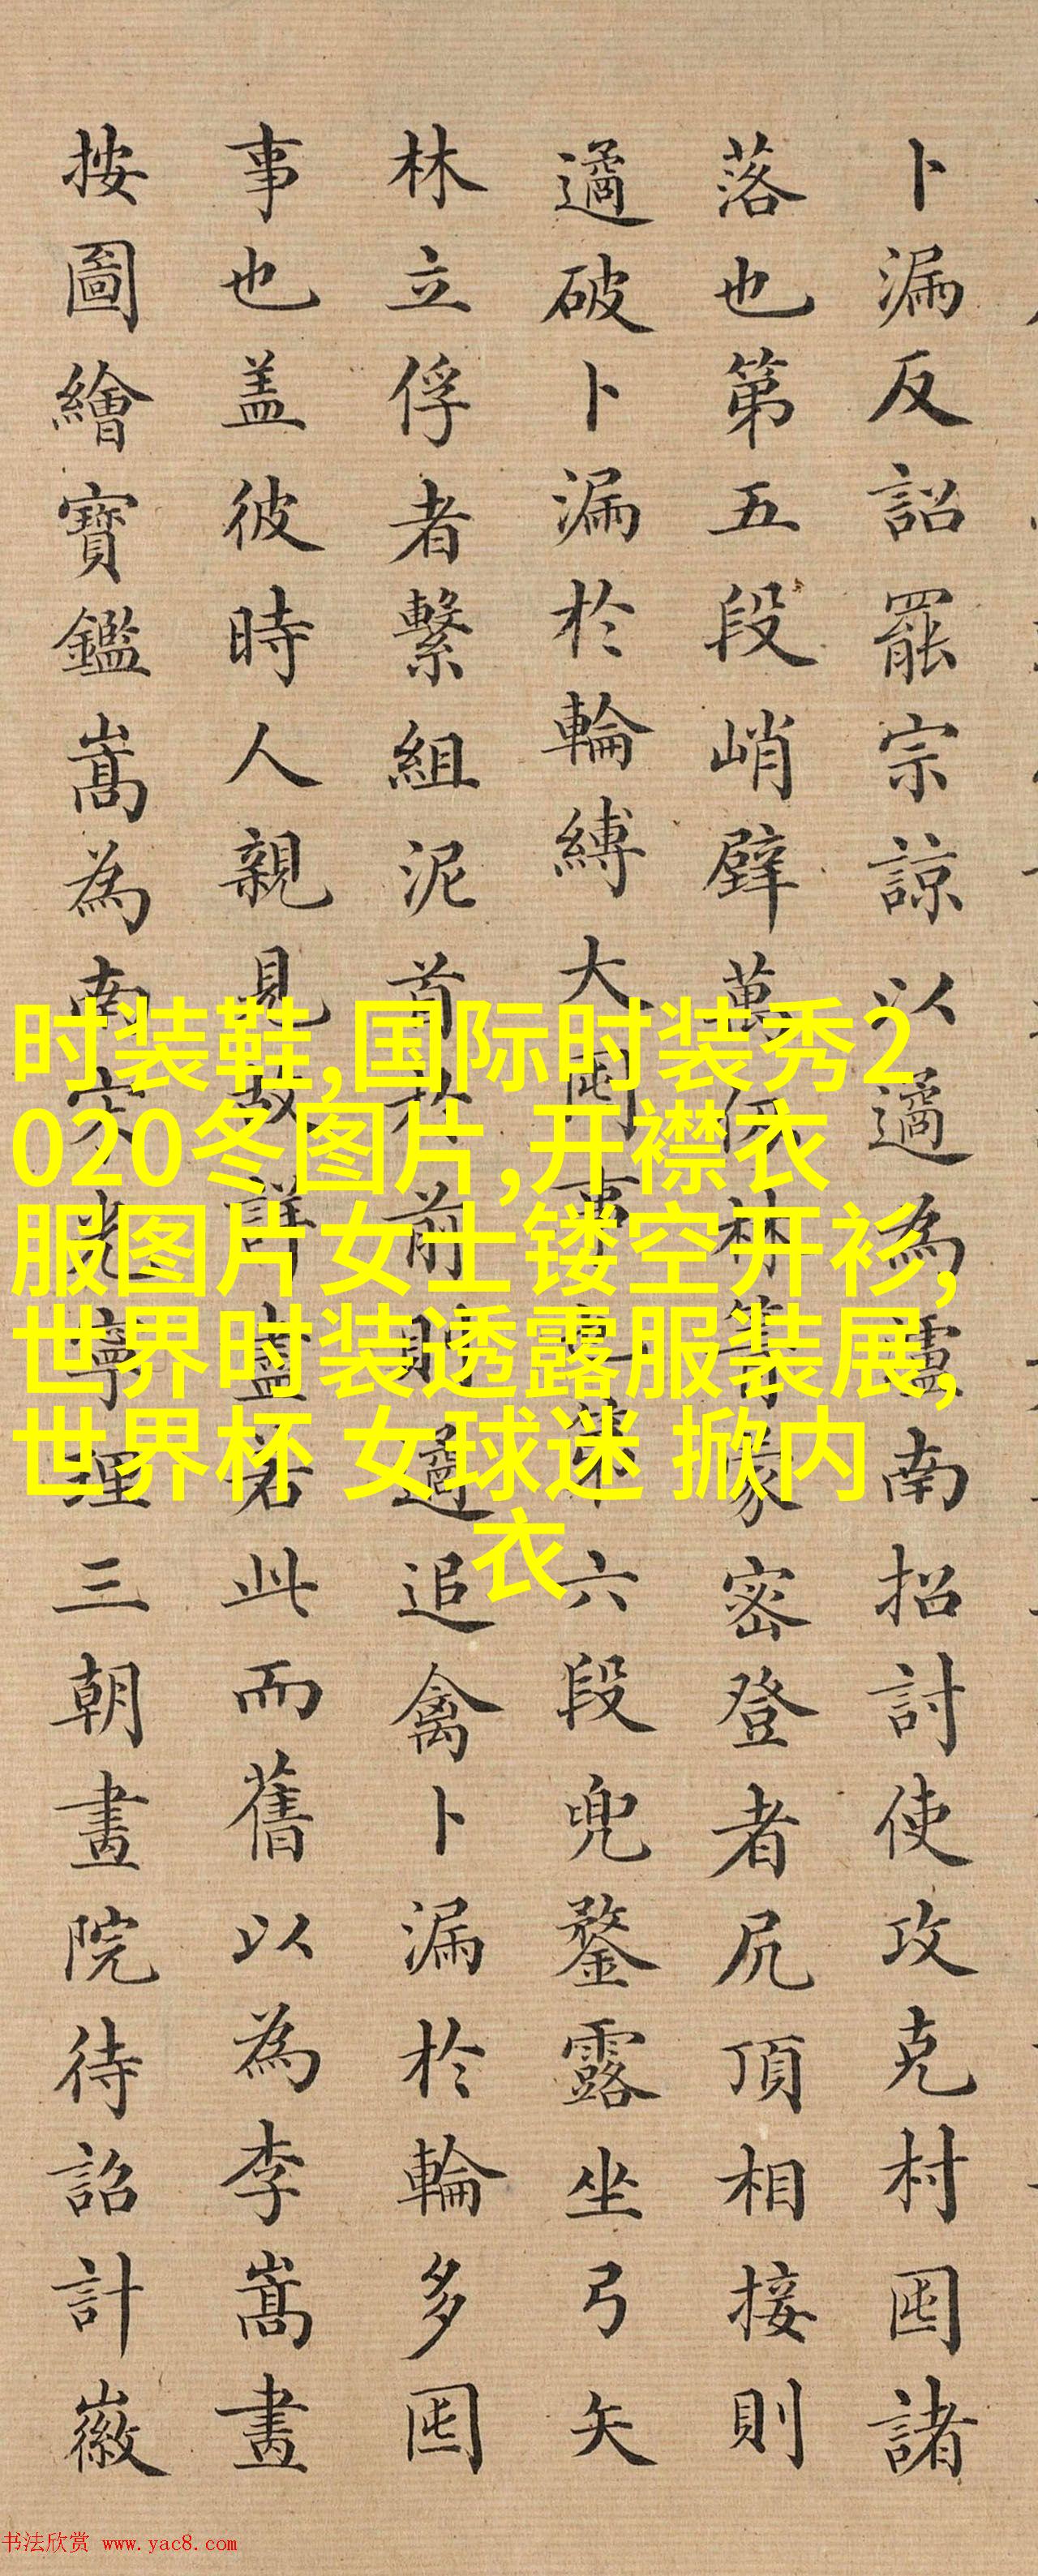 卜漏反詔罷宗諒以遹為瀘南招討使攻克村囤諸
落也第五段峭壁萬仞林箐蒙密登者尻頂相接則
遹破卜漏於輪縛大囤事也第六段兜鍪露坐弓矢
林立俘者繫組泥首於前則遹追禽卜漏於輪多囤
事也盖彼時人親見故詳盡若此而舊以為李嵩畫
按圖繪寶鑑嵩為南宋光寧理三朝畫院待詔計徽
时装鞋,国际时装秀2
020冬图片,开襟衣
服图片女士镂空开衫,
世界时装透露服装展,
世界杯 女球迷 掀内
衣
书法欣赏 www.yac8.com